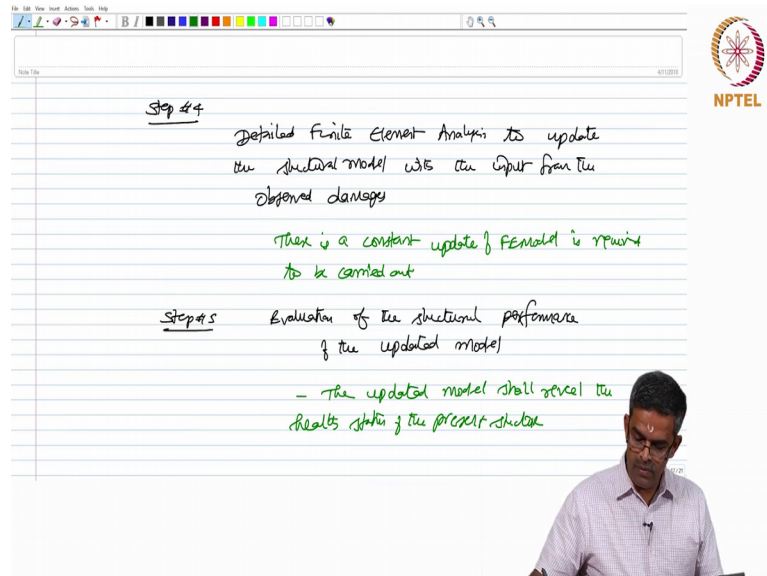 File Edit View Insert Actions Tools Help
Note Title
4/11/2018
NPTEL
Step #4
Detailed Finite Element Analysis to update
the structural model with the input from the
observed damages
There is a constant update of FE model is required
to be carried out
Step #5 Evaluation of the structural performance
of the updated model
– The updated model shall reveal the
health status of the present structure